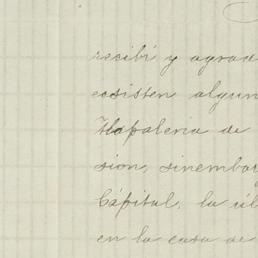 recibí y agrad
ecsisten algun
Tlapaleria de
sion, sinembar
Cápital, la úl
en la casa de